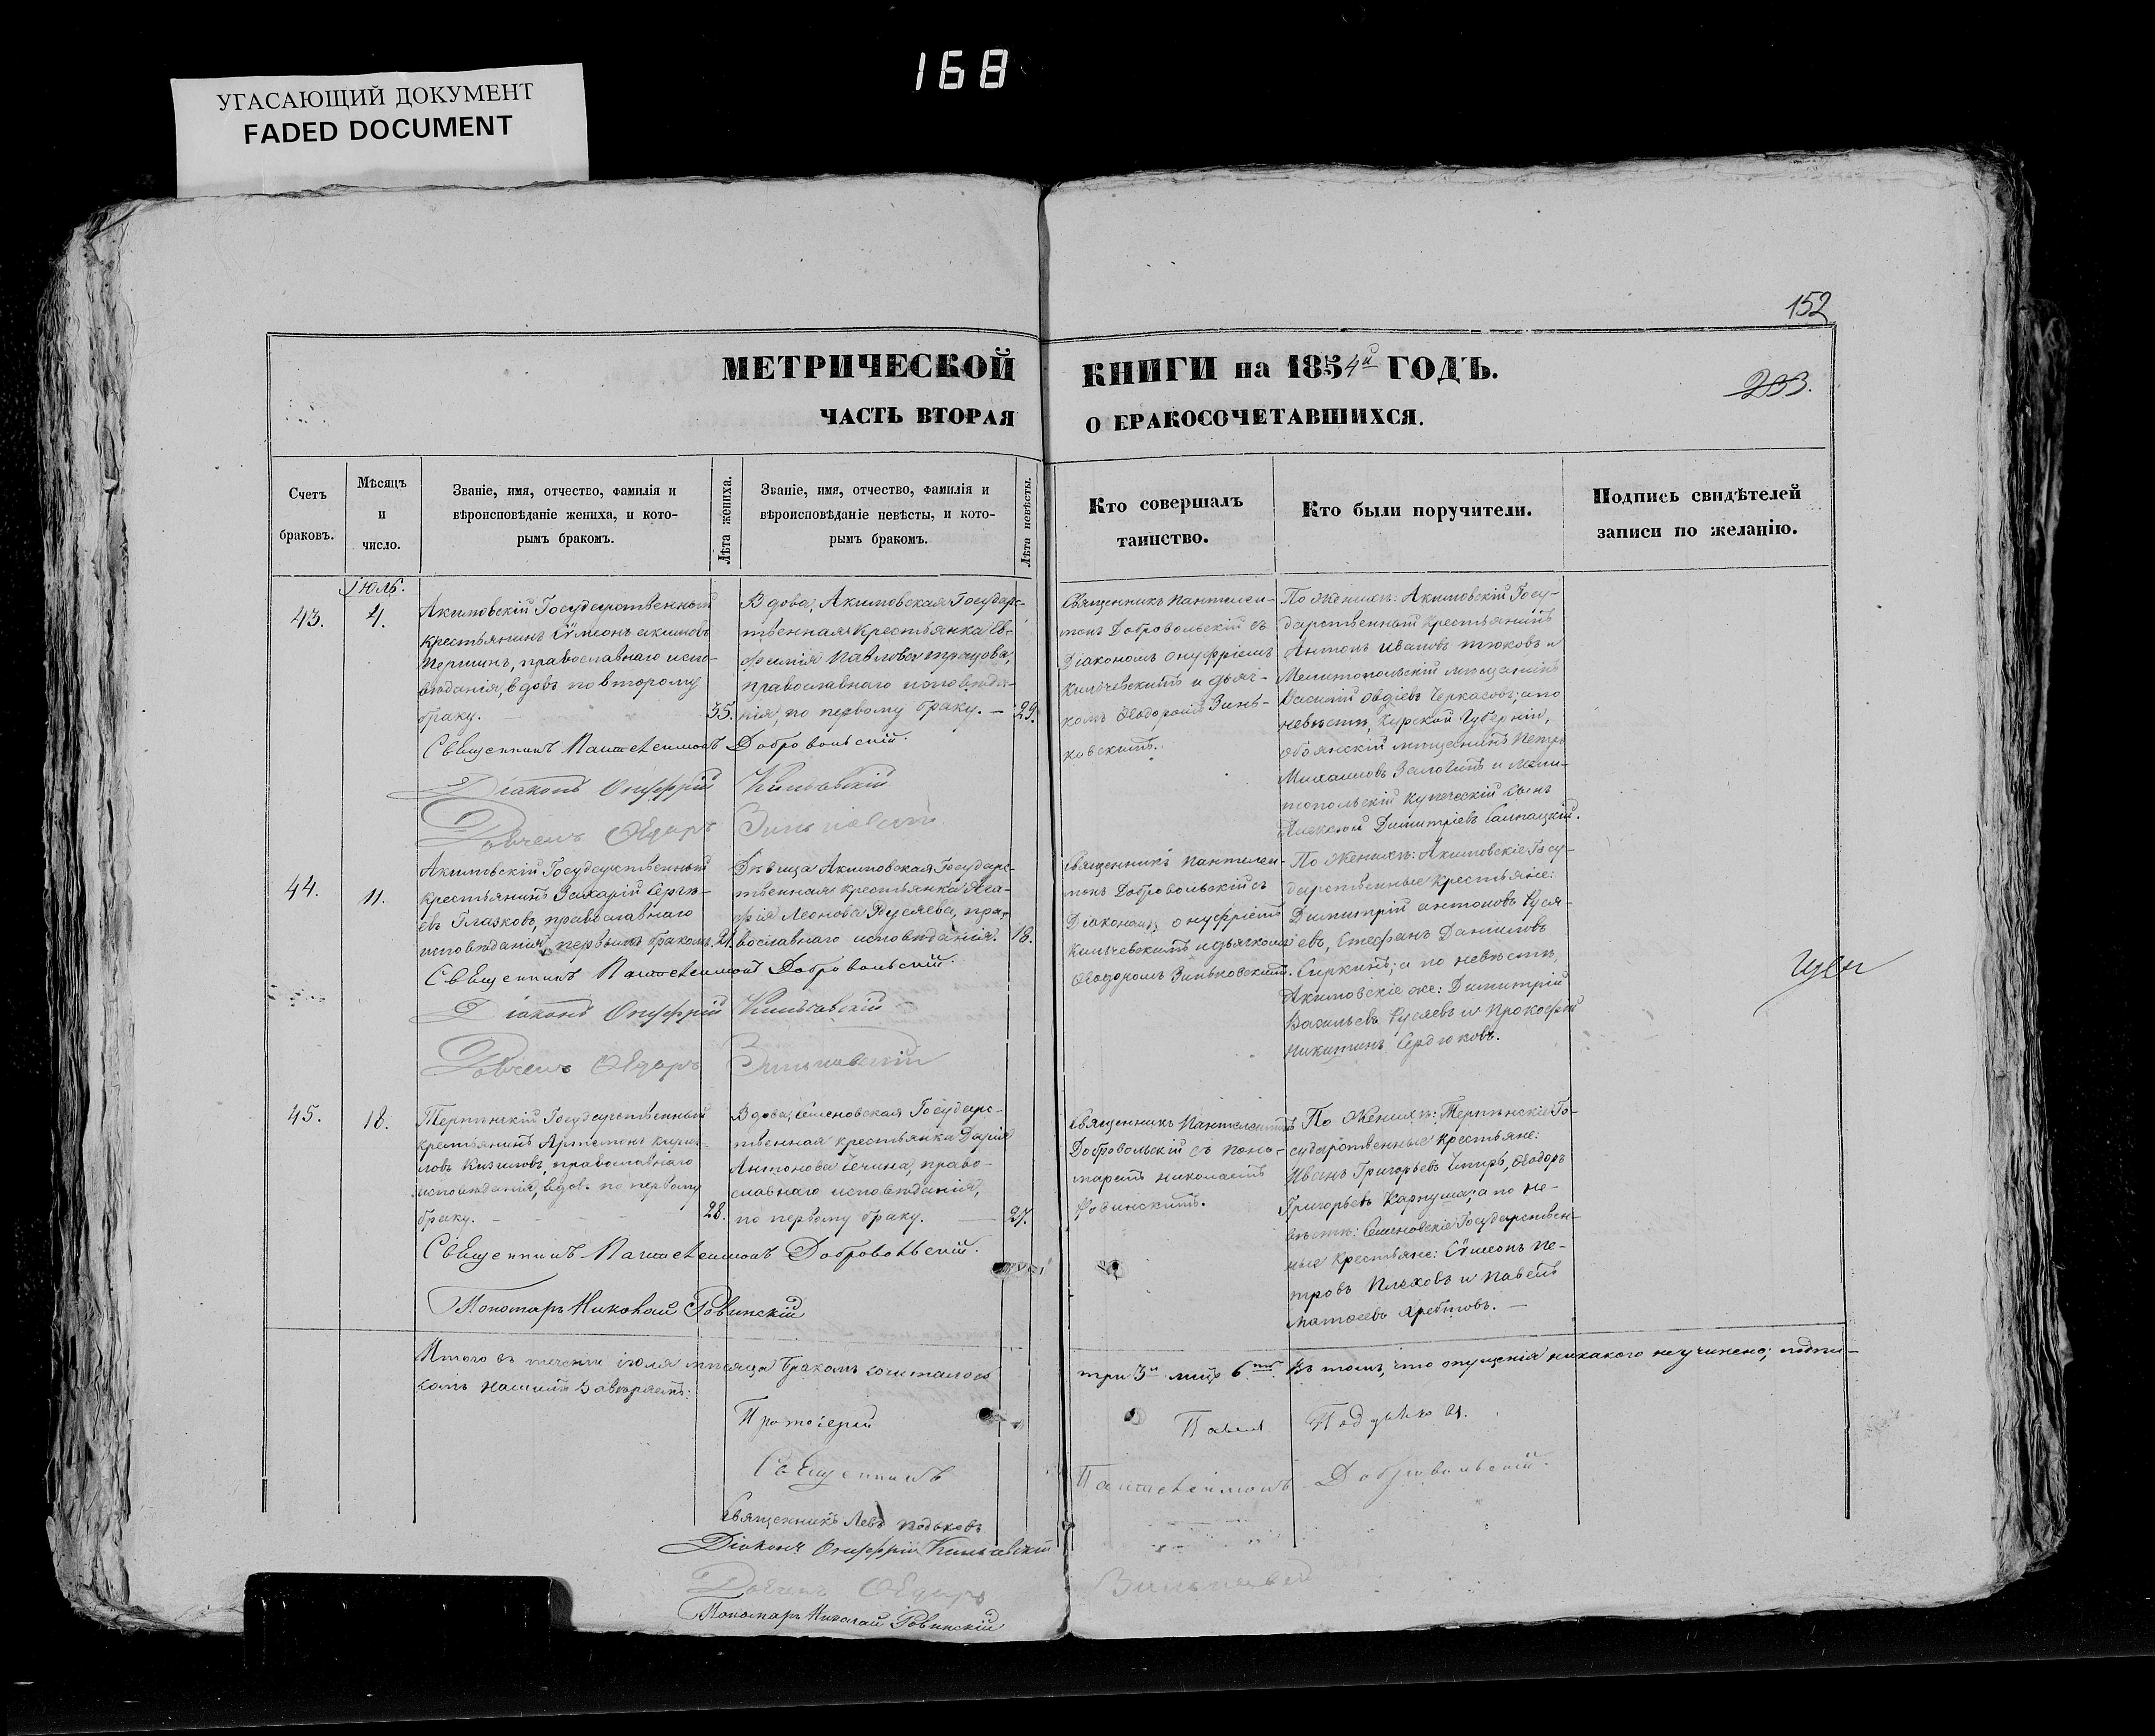 168
УГАСАЮЩИЙ ДОКУМЕНТ
FADED DOCUMENT
152
МЕТРИЧЕСКОЙ КНИГИ на 1854й ГОДЪ.
233.
ЧАСТЬ ВТОРАЯ О БРАКОСОЧЕТАВШИХСЯ.
Счетъ
браковъ.
Мѣсяцъ
и
число.
Званіе, имя, отчество, фамилія и
вѣроисповѣданіе жениха, и кото-
рымъ бракомъ.
Лѣта жениха.
Званіе, имя, отчество, фамилія и
вѣроисповѣданіе невѣсты, и кото-
рымъ бракомъ.
Лѣта невѣсты.
Кто совершалъ
таинство.
Кто были поручители.
Подпись свидѣтелей
записи по желанію.
Іюль.
43.
4.
Акимовскій Государственный
крестьянинъ Сѵмеонъ Акимовъ
Першинъ, православнаго испо-
вѣданія, вдовъ по второму
браку.
35.
Вдова, Акимовская Государс-
твенная крестьянка Ев-
фимія Павлова
православнаго исповѣда-
нія, по первому браку. —
29.
Священникъ Пантелеи-
монъ Добровольскій съ
Діакономъ Онуфріемъ
Кильчевскимъ и дьяч-
комъ Ѳеодоромъ Зинь-
ковскимъ.
По женихѣ: Акимовскій Госу-
дарственный крестьянинъ
Антонъ Ивановъ Тюковъ и
Мелитопольскій мѣщанинъ
Василій Овдіевъ Черкасовъ; а по
невѣстѣ, Курской Губерніи,
Обоянскій мѣщанинъ Петръ
Михаиловъ и Мели-
топольскій купеческій сынъ
Алексій Димитріевъ
Священникъ Пантелеимонъ Добровольскій.
Діаконъ Онуфрій Кильчавскій
Дьячекъ Ѳедоръ Зиньковскій
44.
11.
Акимовскій Государственный
крестьянинъ Захарій Сергѣ-
евъ Глазковъ, православнаго
исповѣданія, первымъ бракомъ.
21.
Дѣвица Акимовская Государс-
твенная крестьянка Ага-
фія Леонова Руселева, пра-
вославнаго исповѣданія.
18.
Священникъ Пантелеи-
монъ Добровольскій съ
Діакономъ Онуфріемъ
Кильчевскимъ и дьячкомъ
Ѳеодоромъ Зиньковскимъ.
По женихѣ: Акимовскіе Госу-
дарственные крестьяне:
Димитрій Антоновъ Руся-
евъ, Стефанъ Даниловъ
Сиркинъ; а по невѣстѣ,
Акимовскіе же: Димитрій
Васильевъ Русяевъ и Прокофій
Никитинъ Сердюковъ.
Священникъ Пантелеимонъ Добровольскій.
Діаконъ Онуфрій Кильчавскій
Дьячекъ Ѳедоръ Зиньковскій
45.
18.
Терпѣнскій Государственный
крестьянинъ Артемонъ Кирил-
ловъ Кизиловъ, православнаго
исповѣданія, вдов. по первому
браку.
28.
Вдова, Семеновская Государс-
твенная крестьянка Дарія
Антонова Чечина, право-
славнаго исповѣданія,
по первому браку.
27.
Священникъ Пантелеимонъ
Добровольскій съ поно-
маремъ Николаемъ
Ровинскимъ.
По женихѣ: Терпѣнскіе Го-
сударственные крестьяне:
Иванъ Григорьевъ Ѳеодоръ
Григорьевъ Карпуша; а по не-
вѣстѣ: Семеновскіе Государствен-
ные крестьяне: Сѵмеонъ Пе-
тровъ Плѣховъ и Павелъ
Матѳеевъ
Священникъ Пантелеимонъ Добровольскій.
Пономарь Николай Ровинскій
Итого въ теченіи іюля мѣсяца бракомъ сочеталось три 3и лицъ 6ть. Въ томъ, что опущенія никакого неучинено; подпи-
сомъ нашимъ завѣряемъ:
Протоіерей Павелъ
Священникъ Пантелеимонъ Добровольскій.
Священникъ Левъ
Діаконъ Онуфрій Кильчавскій
Дьячекъ Ѳедоръ Зиньковскій
Пономарь Николай Ровинскій